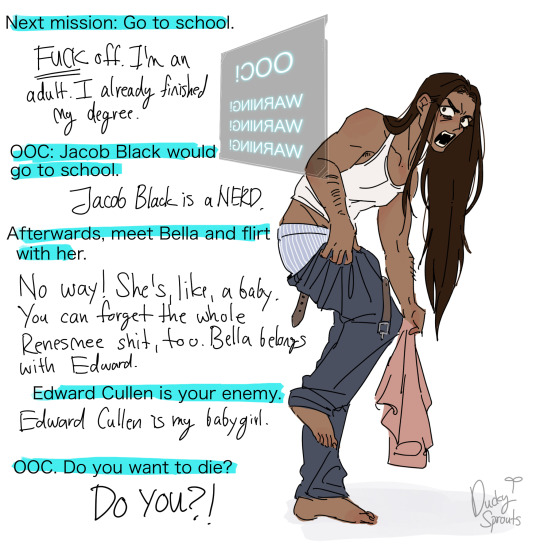 Next mission: Go to school.
FUCK off. I'm an
adult. I already finished
my degree.
OOC: Jacob Black would
go to school.
Jacob Black is a NERD.
Afterwards, meet Bella and flirt
with her.
No way! She's, like, a baby.
You can forget the whole
Renesmee shit, too. Bella belongs
with Edward.
Edward Cullen is your enemy.
Edward Cullen is my babygirl.
OOC. Do you want to die?
Do YOU?!
OOC!
WARNING!
WARNING!
WARNING!
Ducky
Sprouts